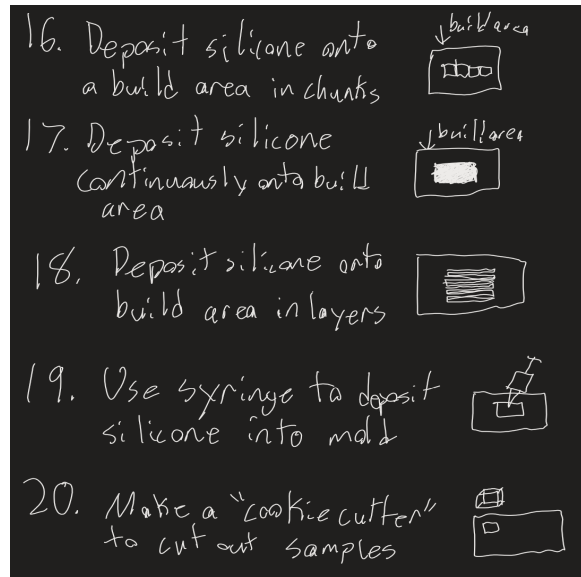 16. Deposit silicone onto
a build area in chunks
build area
17. Deposit silicone
continuously onto build
area
build area
18. Deposit silicone onto
build area in layers
19. Use syringe to deposit
silicone into mold
20. Make a "cookie cutter"
to cut out samples